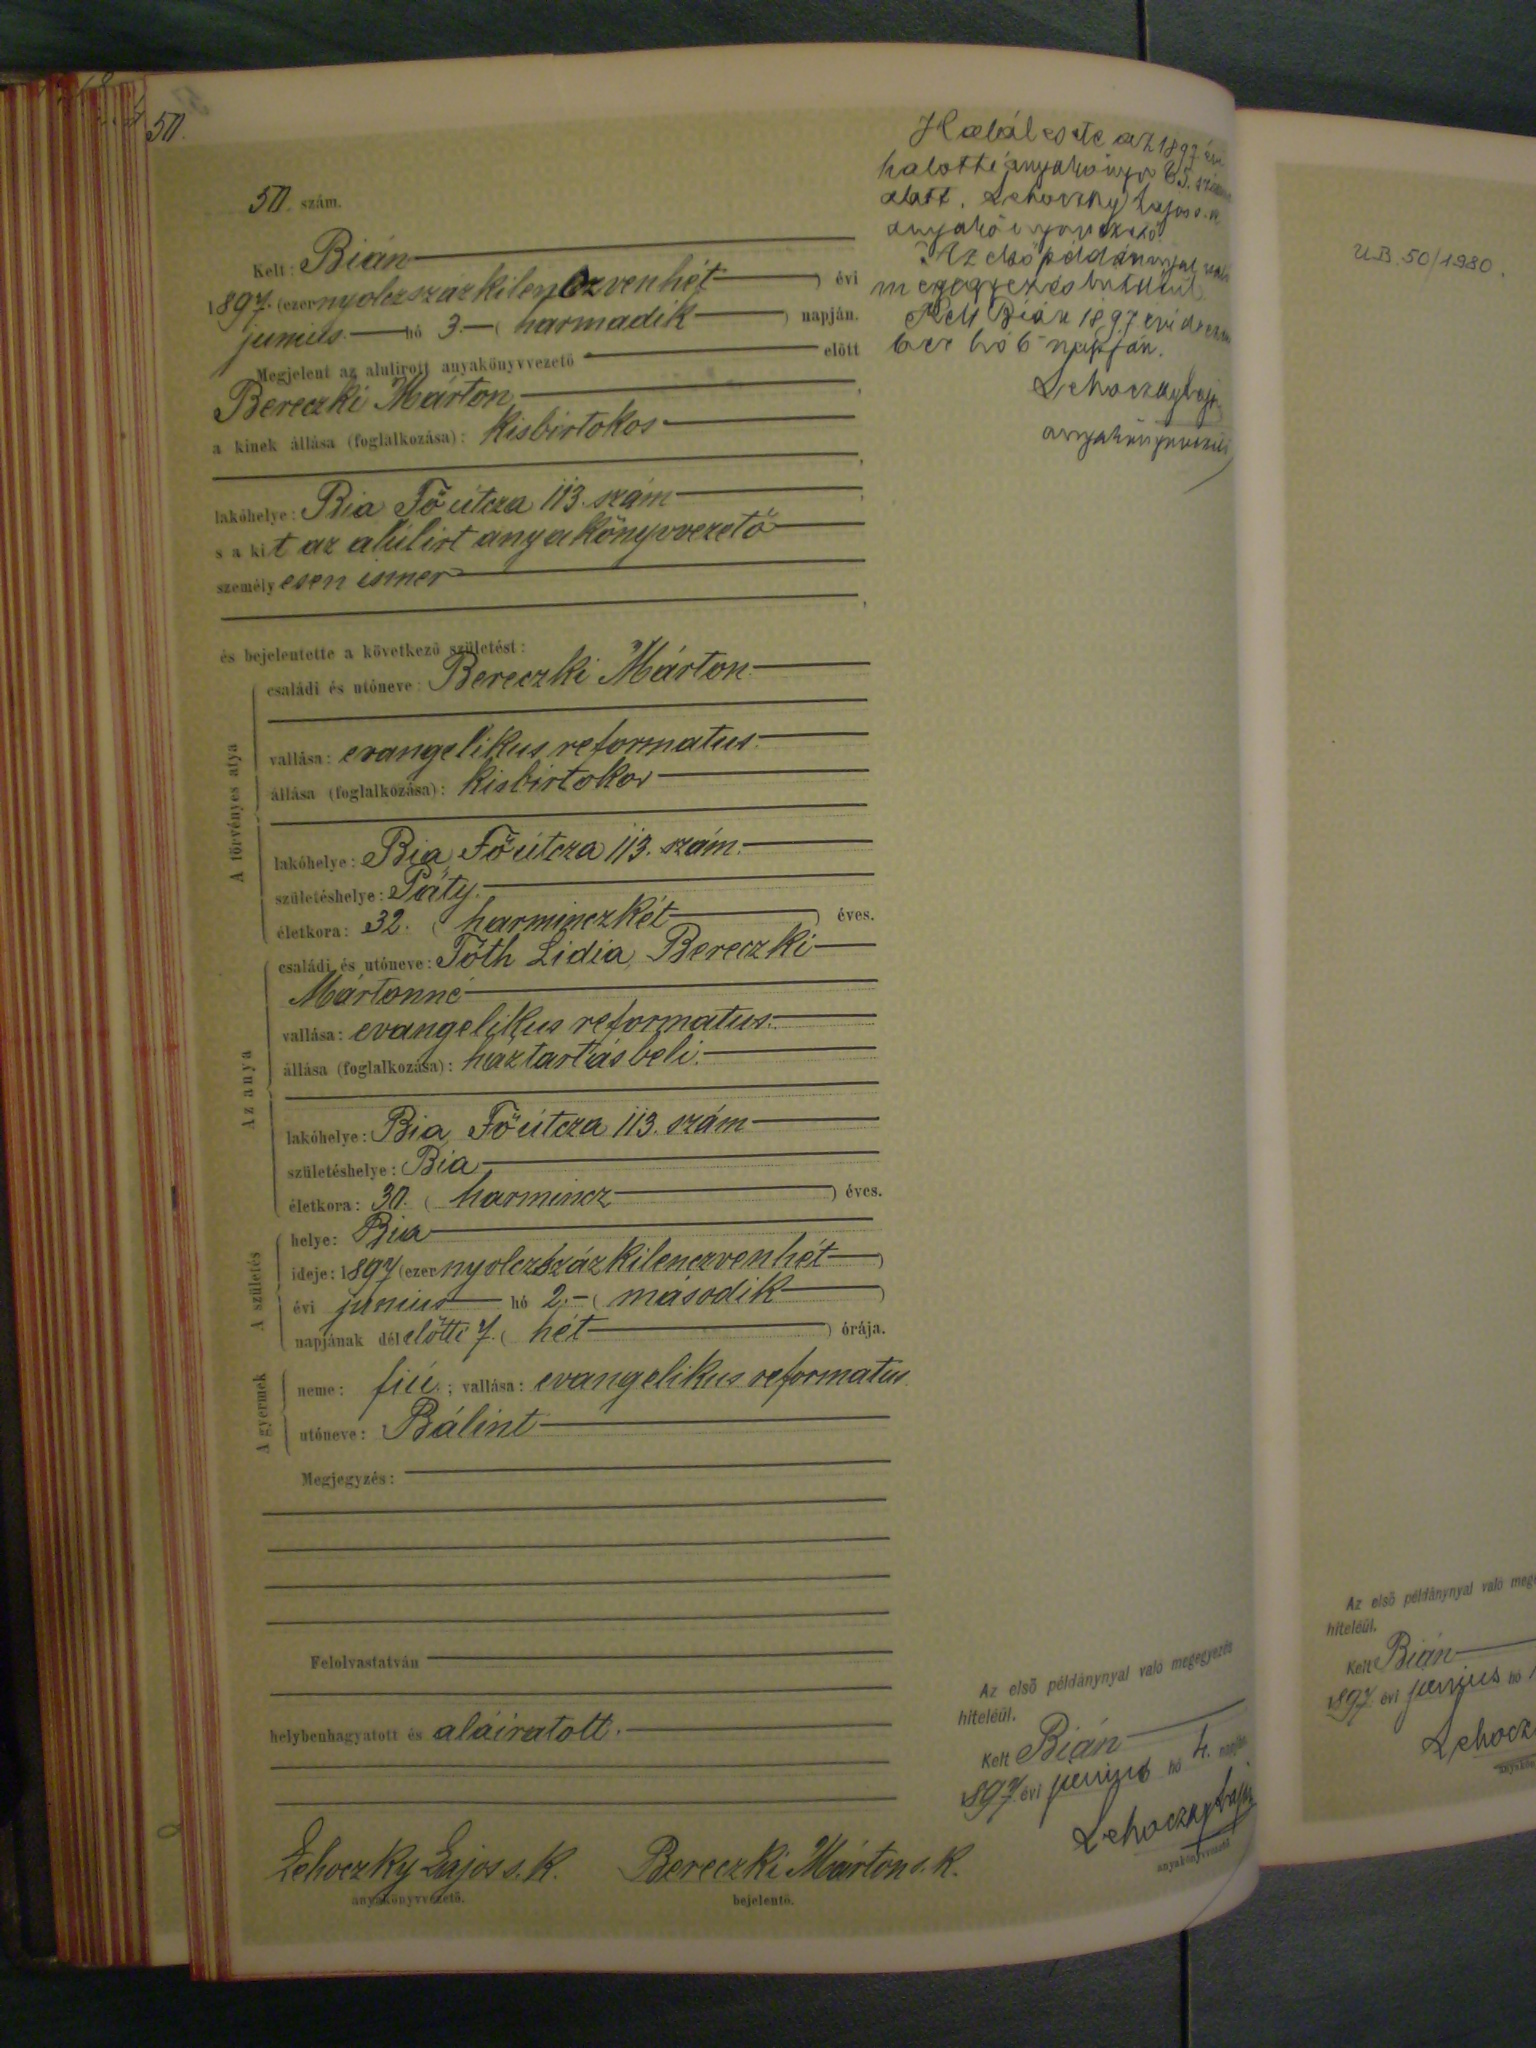 50.
50. szám.
Kelt: Bián
1897. (ezernyolczszázkilenczvenhét) évi
junius hó 3. (harmadik) napján.
Megjelent az alulirott anyakönyvvezető előtt
Bereczki Márton,
a kinek állása (foglalkozása): kisbirtokos
,
lakóhelye: Bia Főútcza 113. szám,
s a kit az alúlirt anyakönyvvezető
személyesen ismer
,
és bejelentette a következő születést:
A törvényes atya
családi és utóneve: Bereczki Márton.
vallása: evangelikus reformatus.
állása (foglalkozása): kisbirtokos
lakóhelye: Bia, Főútcza 113. szám.
születéshelye: Páty.
életkora: 32. (harminczkét) éves.
Az anya
családi és utóneve: Tóth Lidia, Bereczki
Mártonné
vallása: evangelikus reformatus.
állása (foglalkozása): háztartásbeli.
lakóhelye: Bia, Főútcza 113. szám
születéshelye: Bia
életkora: 30. (harmincz) éves.
A születés
helye: Bia
ideje: 1897 (ezernyolczszázkilenczvenhét)
évi junius hó 2. (második)
napjának délelőtti 7. (hét) órája.
A gyermek
neme: fiú.; vallása: evangelikus reformatus.
utóneve: Bálint
Megjegyzés:
Felolvastatván
helybenhagyatott és aláiratott.
Lehoczky Lajos s. k. Bereczki Márton s. k.
anyakönyvvezető. bejelentő.
Halálesete az 1897 évi
halotti anyakönyv 65. szám
alatt. Lehoczky Lajos s. k.
anyakönyvvezető.
Az első példánnyal való
megegyezés hiteléül
Kelt Bián 1897 évi decem
ber hó 6 napján.
Lehoczky Lajos
anyakönyvvezető
Az első példánynyal való megegyezés
hiteléül.
Kelt Bián
1897. évi junius hó 4. napján
Lehoczky Lajos
anyakönyvvezető
U.B. 50/1980.
Az első példánynyal való
hiteléül.
Kelt Bián
1897. évi junius hó